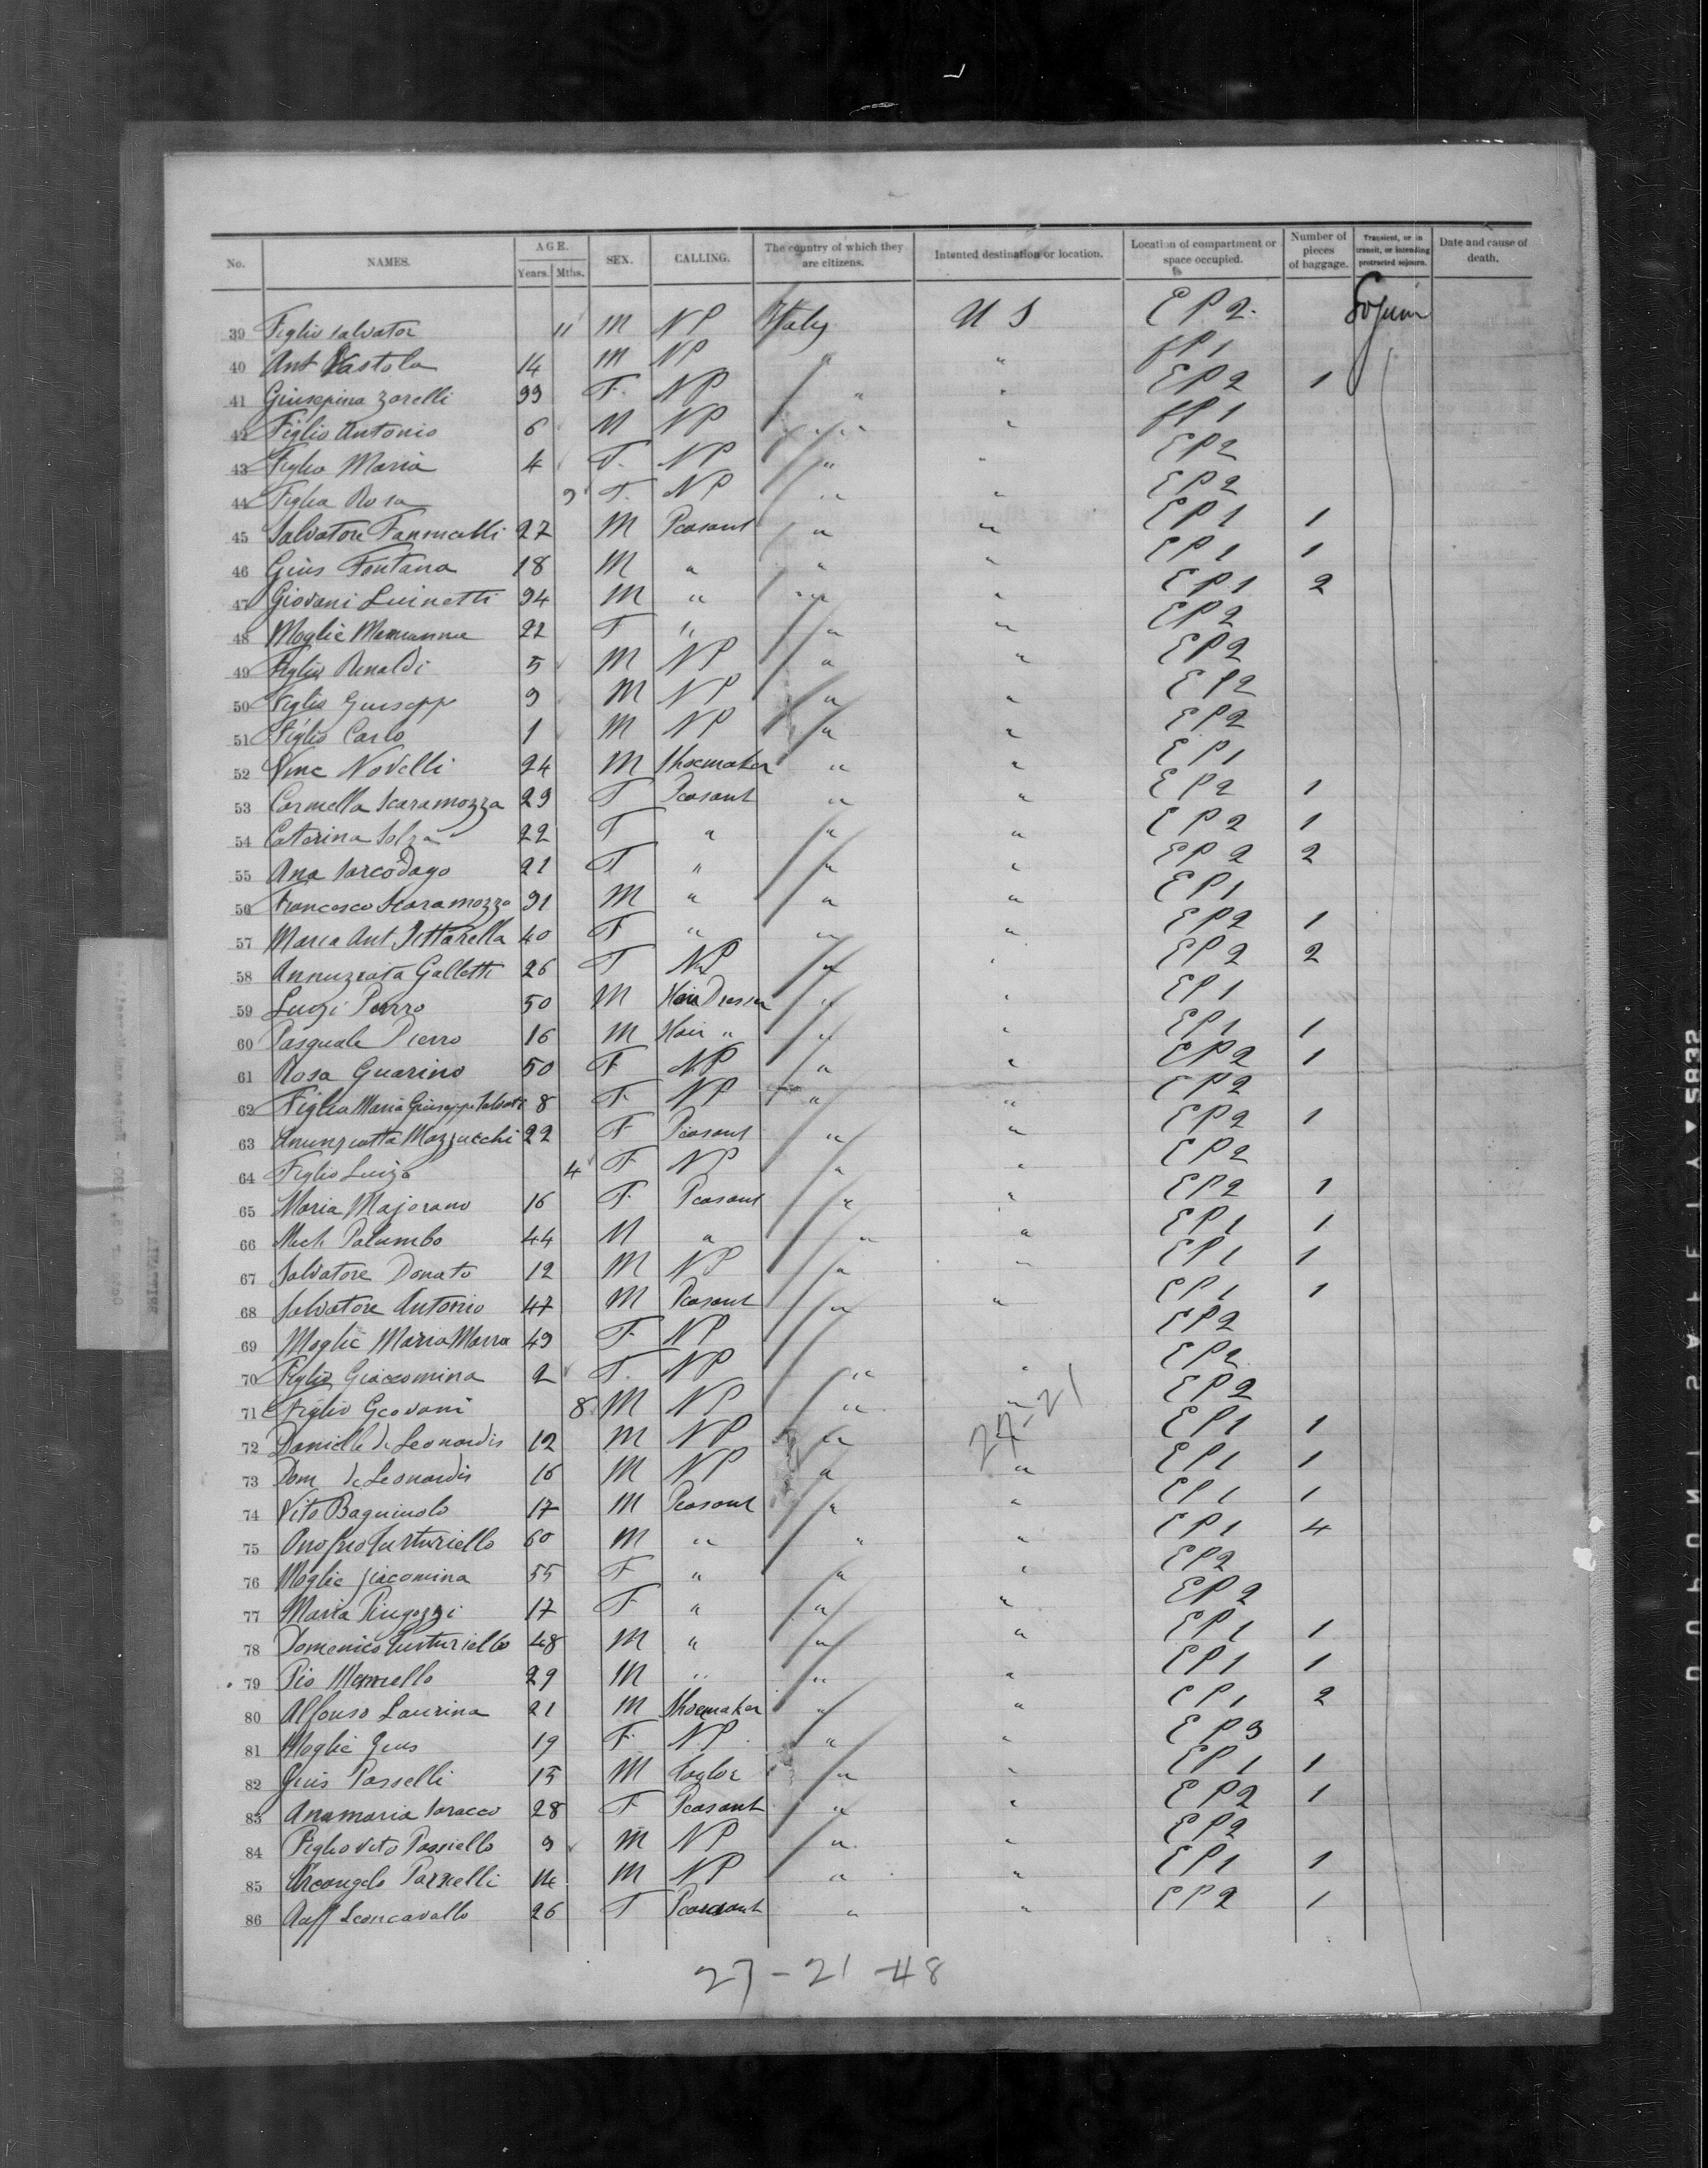 No. NAMES. AGE. Years. Mths. SEX. CALLING. The country of which they are citizens. Intented destination or location. Location of compartment or space occupied. Number of pieces of baggage. Transient, or in transit, or intending protracted sojourn. Date and cause of death.
39 Figlio Salvator 11 M NP Italy U S EP2. Sojurn
40 Ant Vastola 14 M NP " " fP1
41 Giusepina Zarelli 33 F. NP " " EP2 1
42 Figlio Antonio 6 M NP " " fP1
43 Figlia Maria 4 F. NP " " EP2
44 Figlia Rosa F. NP " " EP2
45 Salvatore 27 M Peasant " " EP1 1
46 Gius Fontana 18 M " " " EP1 1
47 Giovani Luinetti 34 M " " " EP1 2
48 Moglie Marianna 22 F " " " EP2
49 Figlio Rinaldi 5 M NP " " EP2
50 Figlio Giusepp 3 M NP " " EP2
51 Figlio Carlo 1 M NP " " EP2
52 Vinc Novelli 24 M Shoemaker " " EP1
53 Carmella Scaramozza 23 F Peasant " " EP2 1
54 Caterina Solza 22 F " " " EP2 1
55 Ana Sarcodago 21 F " " " EP2 2
56 Francesco Scaramozza 31 M " " " EP1
57 Maria Ant Pittarella 40 F " " " EP2 1
58 Annuzziata Galletti 26 F NP " " EP2 2
59 Luigi Pierro 50 M Hair Dresser " " EP1
60 Pasquale Pierro 16 M Hair " " " EP1 1
61 Rosa Guarino 50 F NP " " EP2 1
62 Figlia Maria Giuseppe 8 F NP " " EP2
63 Anunziatta Mazzucchi 22 F Peasant " " EP2 1
64 Figlio Luiza 4 F NP " " EP2
65 Maria Majorano 16 F Peasant " " EP2 1
66 Mich Palumbo 44 M " " " EP1 1
67 Salvatore Donato 12 M NP " " EP1 1
68 Salvatore Antonio 47 M Peasant " " EP1 1
69 Moglie Maria Marra 43 F NP EP2
70 Figlio Giaccomina 2 F. NP " " EP2
71 Figlio Geovani 8 M NP " " EP2
24-21
72 Danielle de Leonardis 12 M NP " EP1 1
73 Dom de Leonardis 16 M NP " " EP1 1
74 Vito Baguinolo 17 M Peasant " " EP1 1
75 Onofrio Turturiello 60 M " " " EP1 4
76 Moglie Jiacomina 55 F " " " EP2
77 Maria Pingozzi 17 F " " " EP2
78 Domenico Turturiello 48 M " " " EP1 1
79 Pio 29 M " " " EP1 1
80 Alfonso Laurina 21 M Shoemaker " " EP1 2
81 Moglie Gius 19 F. NP. " " EP3
82 Gius Passelli 15 M Taylor " " EP1 1
83 Anamaria Saracco 28 F Peasant " " EP2 1
84 Figlio Vito Passiello 3 M NP " " EP2
85 Arcangelo 14 M NP " " EP1 1
86 Raff Leoncavallo 26 F Peasant " " EP2 1
27-21-48